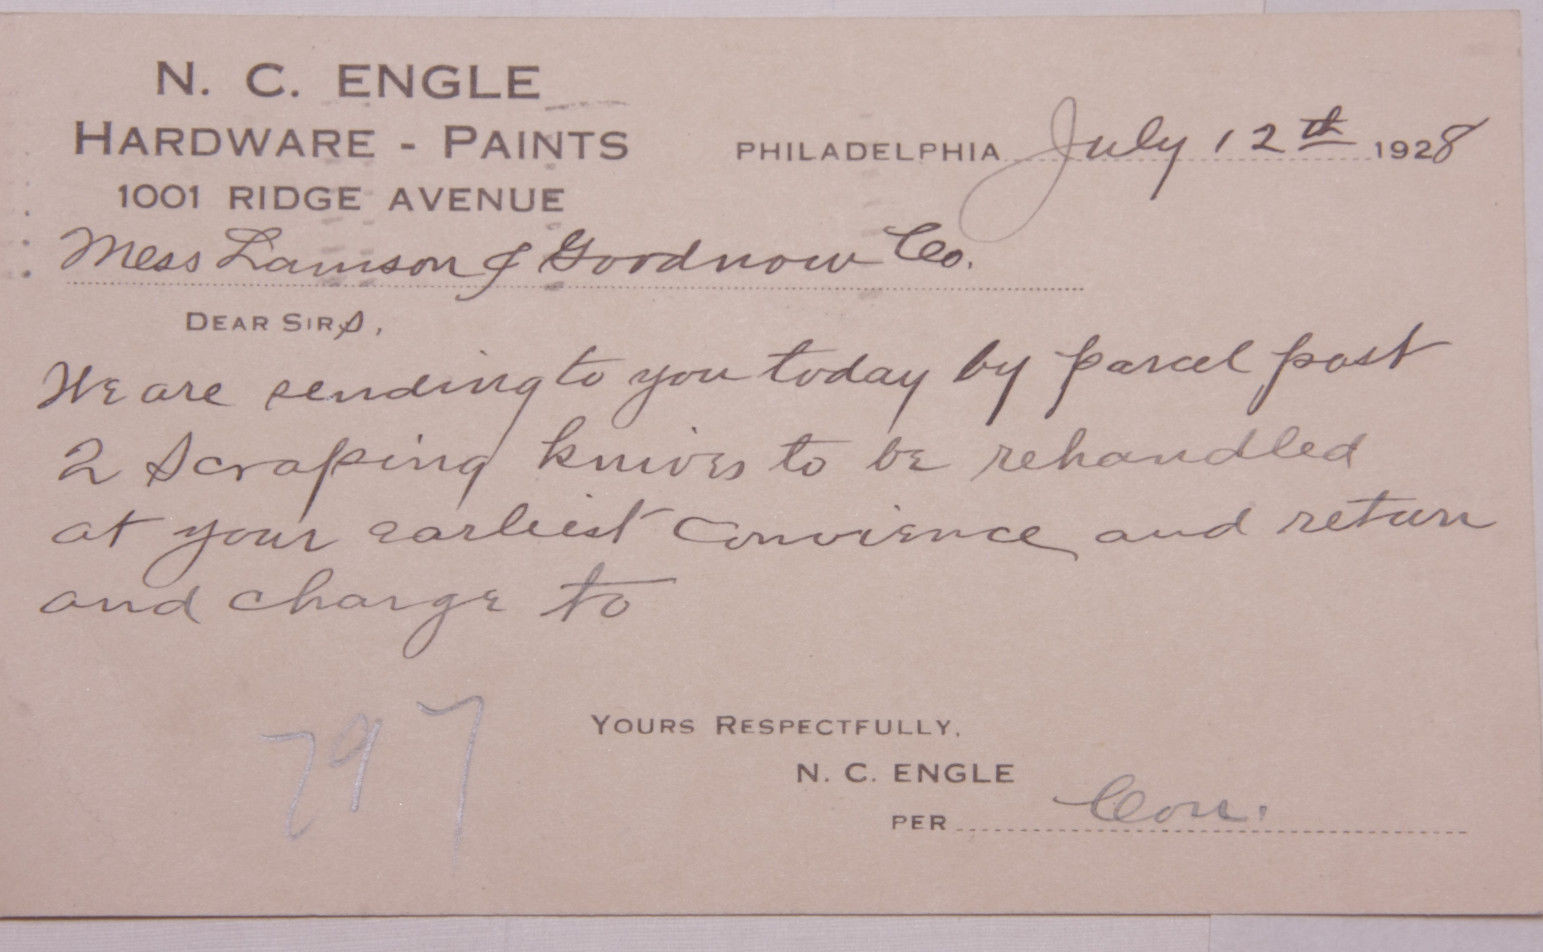 N. C. ENGLE
HARDWARE - PAINTS
1001 RIDGE AVENUE
PHILADELPHIA July 12th 1928
Mess Lamson & Goodnow Co.
DEAR SIRS,
We are sending to you today by parcel post
2 Scraping knives to be rehandled
at your earliest convience and return
and charge to
797
YOURS RESPECTFULLY,
N. C. ENGLE
PER